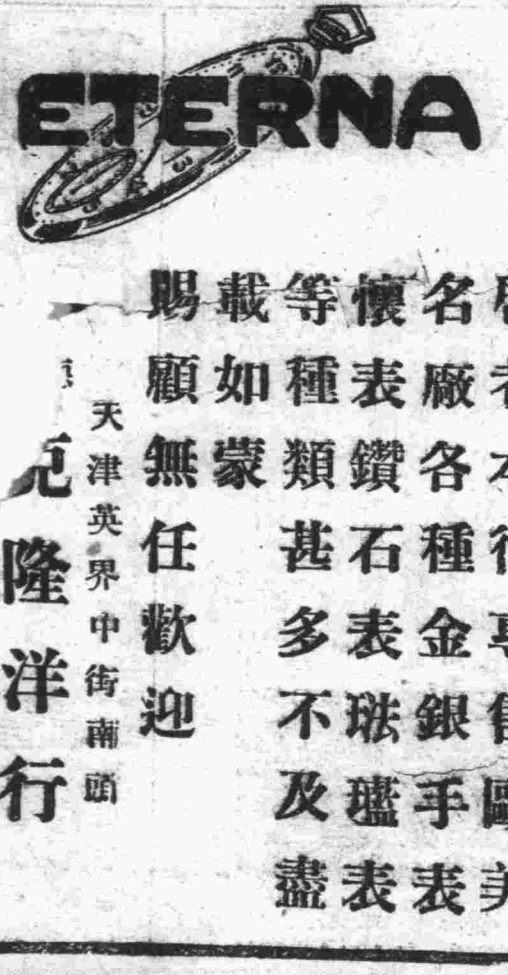 ETERNA
啓者本行專售歐美
名廠各種金銀手表
懷表鑽石表琺瑯表
等種類甚多不及盡
載如蒙
賜顧無任歡迎
天津英界中街南頭
克隆洋行